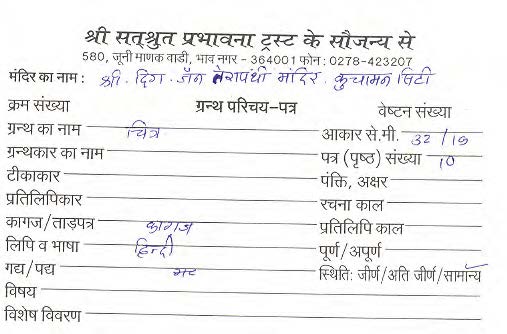 श्री सत्श्रुत प्रभावना ट्रस्ट के सौजन्य से
580, जूनी माणक वाडी, भाव नगर - 364001 फोन : 0278-423207
मंदिर का नाम : श्री. दिग. जैन तेरापंथी मंदिर, कुचामन सिटी
क्रम संख्या ग्रन्थ परिचय-पत्र वेष्टन संख्या
ग्रन्थ का नाम चित्र आकार से.मी. 32/19
ग्रन्थकार का नाम पत्र (पृष्ठ) संख्या 10
टीकाकार पंक्ति, अक्षर
प्रतिलिपिकार रचना काल
कागज/ताड़पत्र कागज प्रतिलिपि काल
लिपि व भाषा हिन्दी पूर्ण/अपूर्ण
गद्य/पद्य स्थिति: जीर्ण/अति जीर्ण/सामान्य
विषय
विशेष विवरण